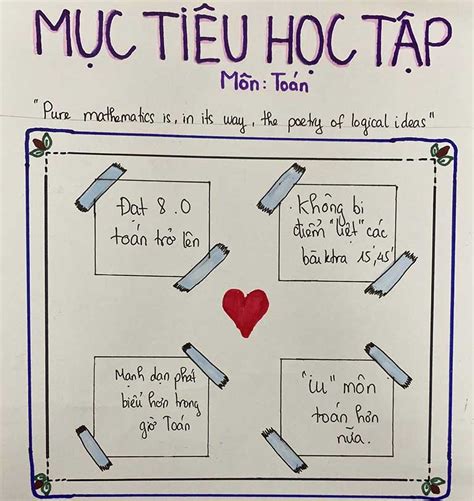 MỤC TIÊU HỌC TẬP
Môn: Toán
"Pure mathematics is, in its way, the poetry of logical ideas"
Đạt 8.0
toán trở lên
. Không bị
điểm "liệt" các
bài ktra 15', 45'
Mạnh dạn phát
biểu hơn trong
giờ Toán
"iu" môn
toán hơn
nữa.